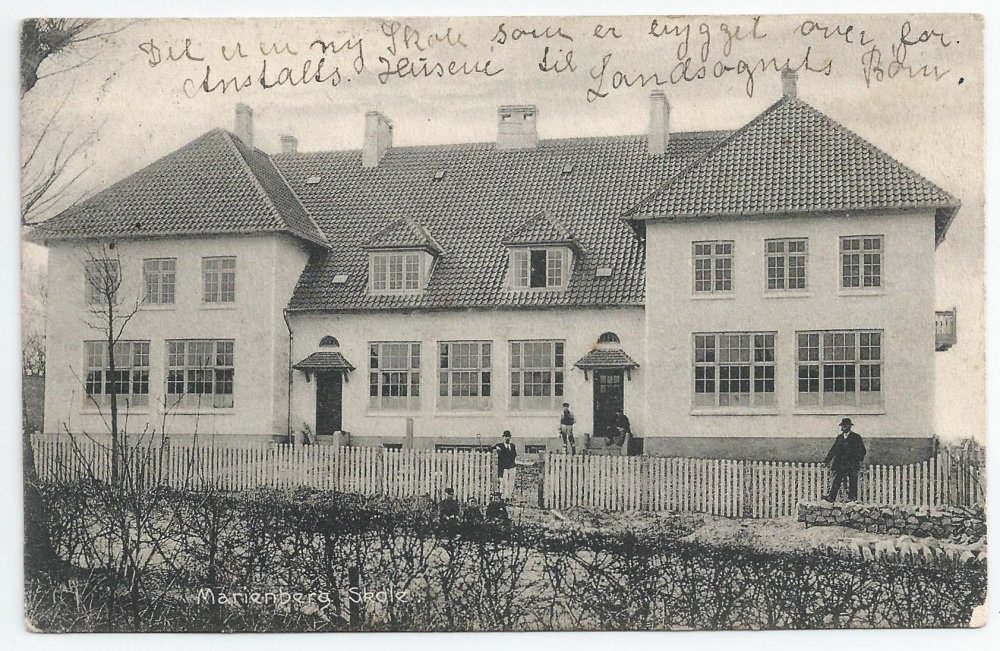 Det er en ny Skole som er bygget over for
Anstalts. Husene til Landsognets Børn.
Marienberg Skole